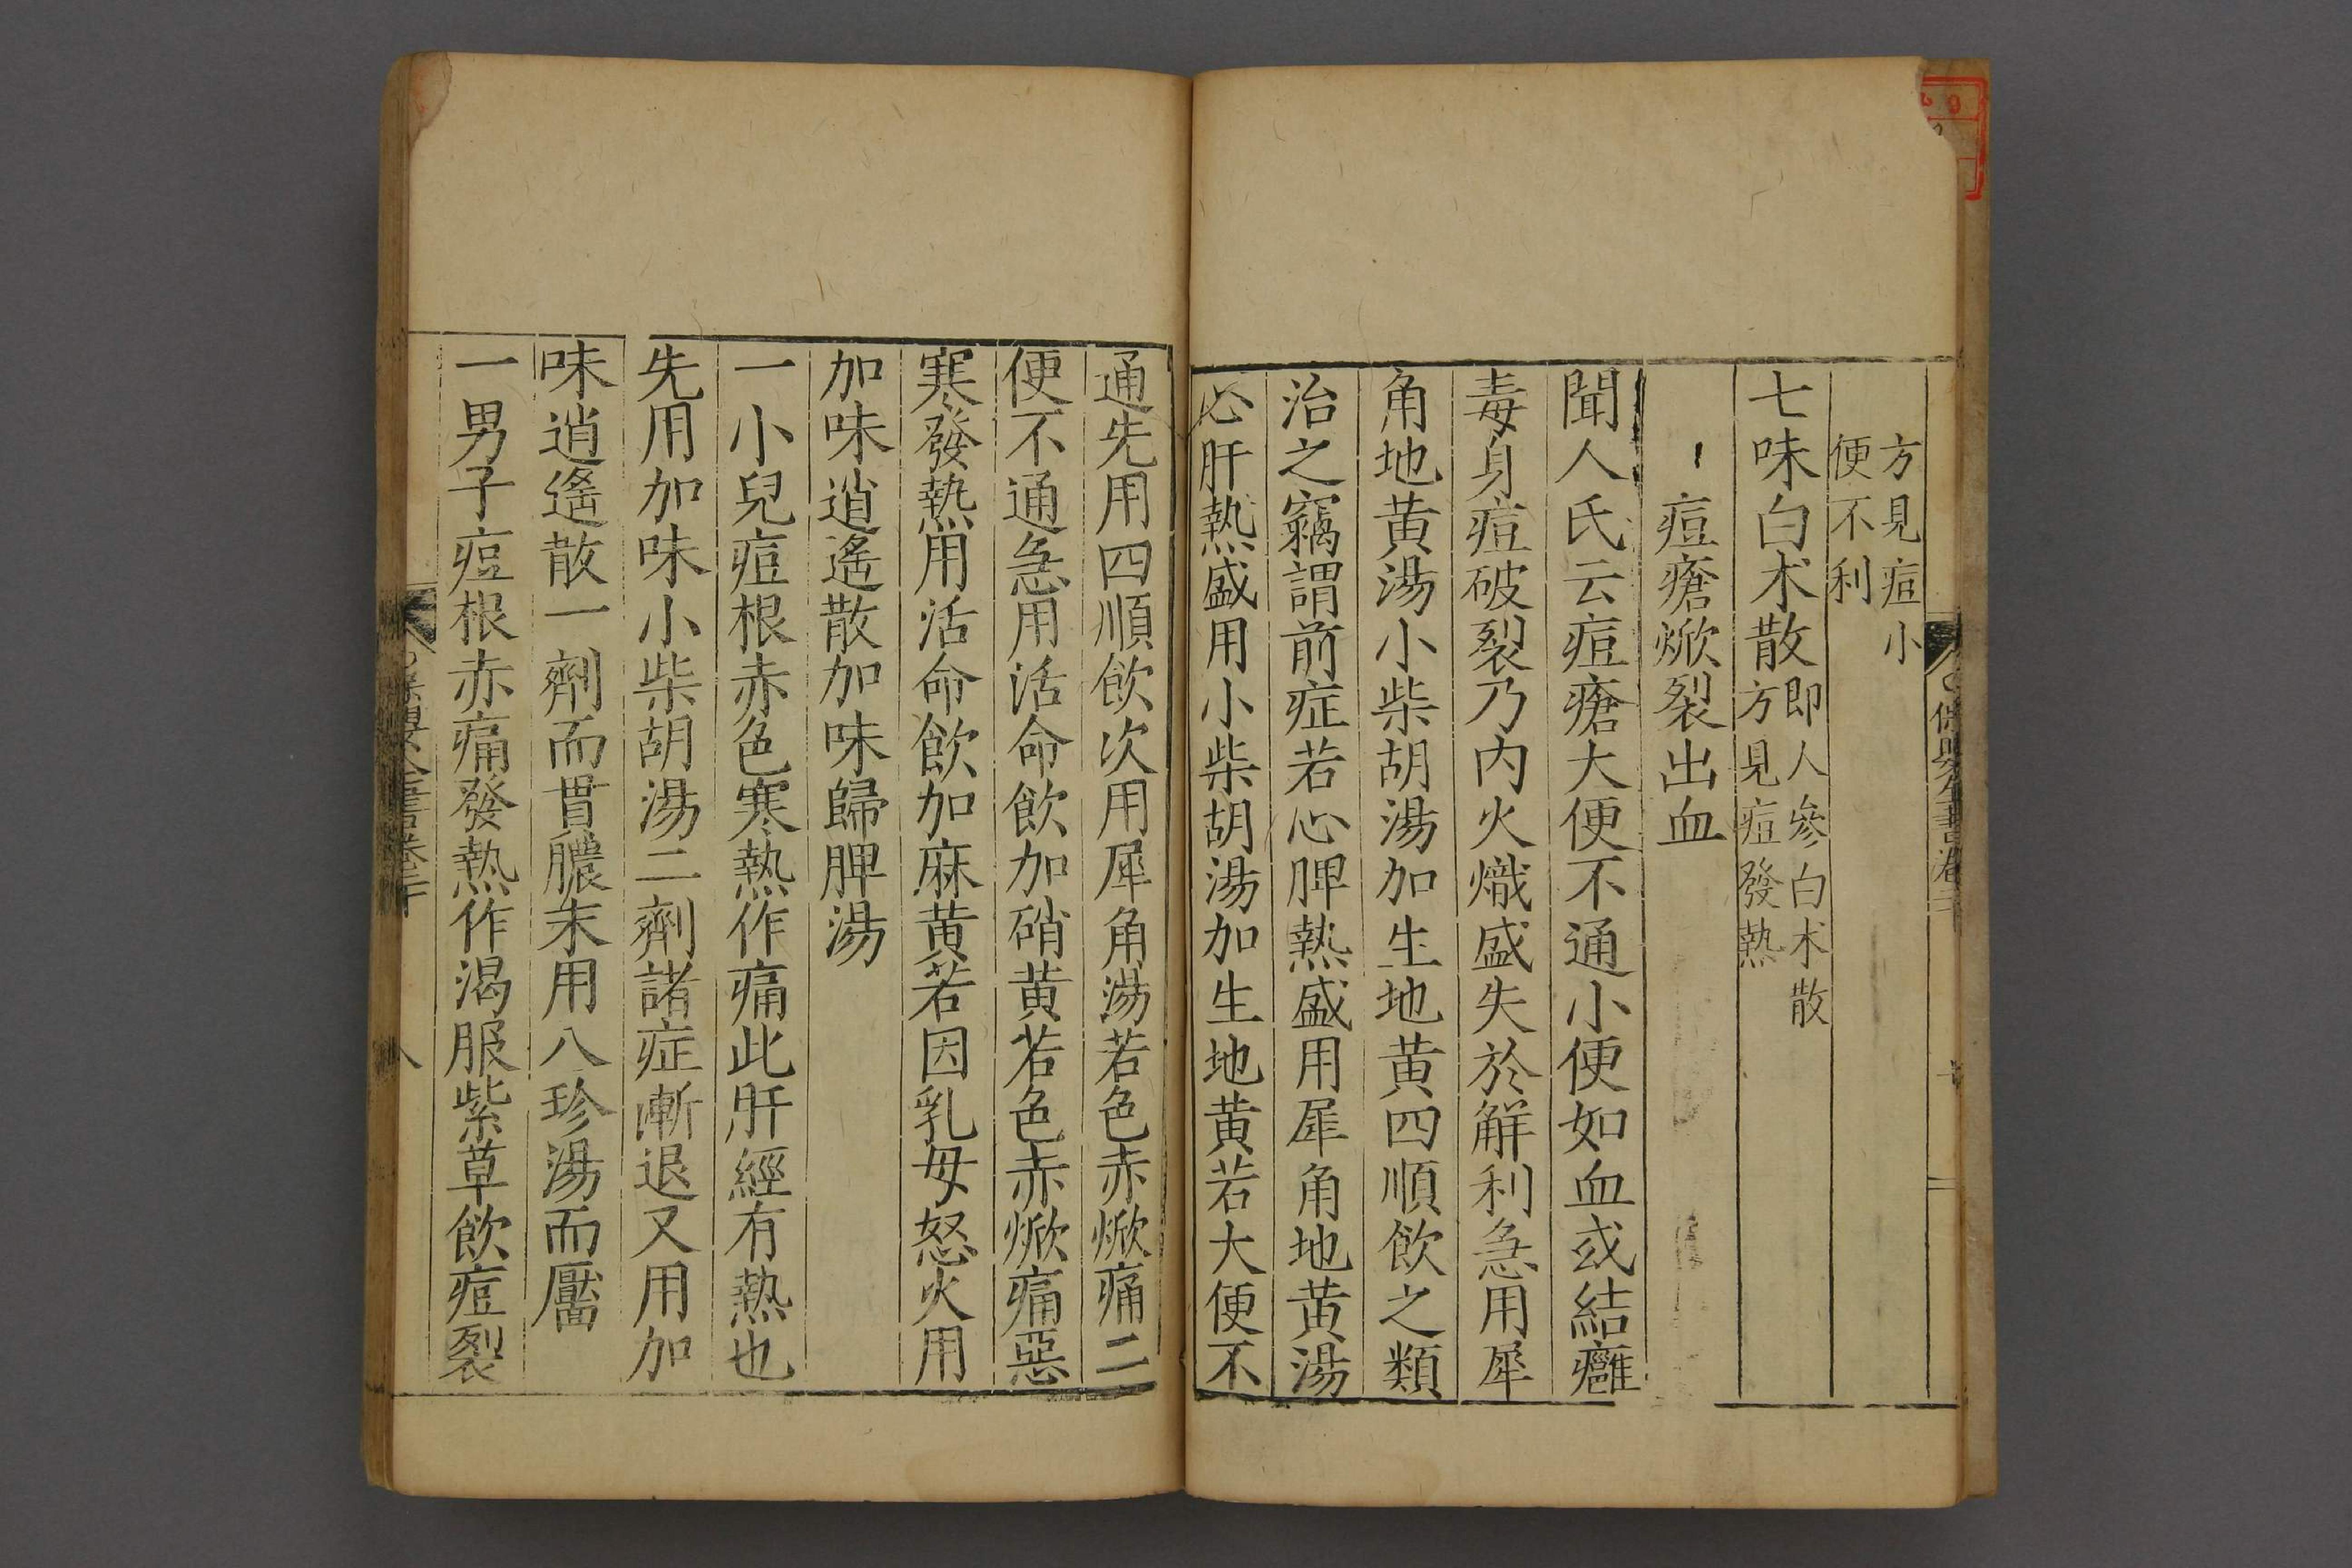 方見痘小
便不利
七味白术散即人參白术散
方見痘發熱
痘瘡焮裂出血
聞人氏云痘瘡大便不通小便如血或結癰
毒身痘破裂乃內火熾盛失於解利急用犀
角地黃湯小柴胡湯加生地黃四順飲之類
治之竊謂前症若心脾熱盛用犀角地黃湯
心肝熱盛用小柴胡湯加生地黃若大便不
通先用四順飲次用犀角湯若色赤焮痛二
便不通急用活命飲加硝黃若色赤焮痛惡
寒發熱用活命飲加麻黃若因乳母怒火用
加味逍遙散加味歸脾湯
一小兒痘根赤色寒熱作痛此肝經有熱也
先用加味小柴胡湯二劑諸症漸退又用加
味逍遙散一劑而貫膿末用八珍湯而靨
一男子痘根赤痛發熱作渴服紫草飲痘裂
八